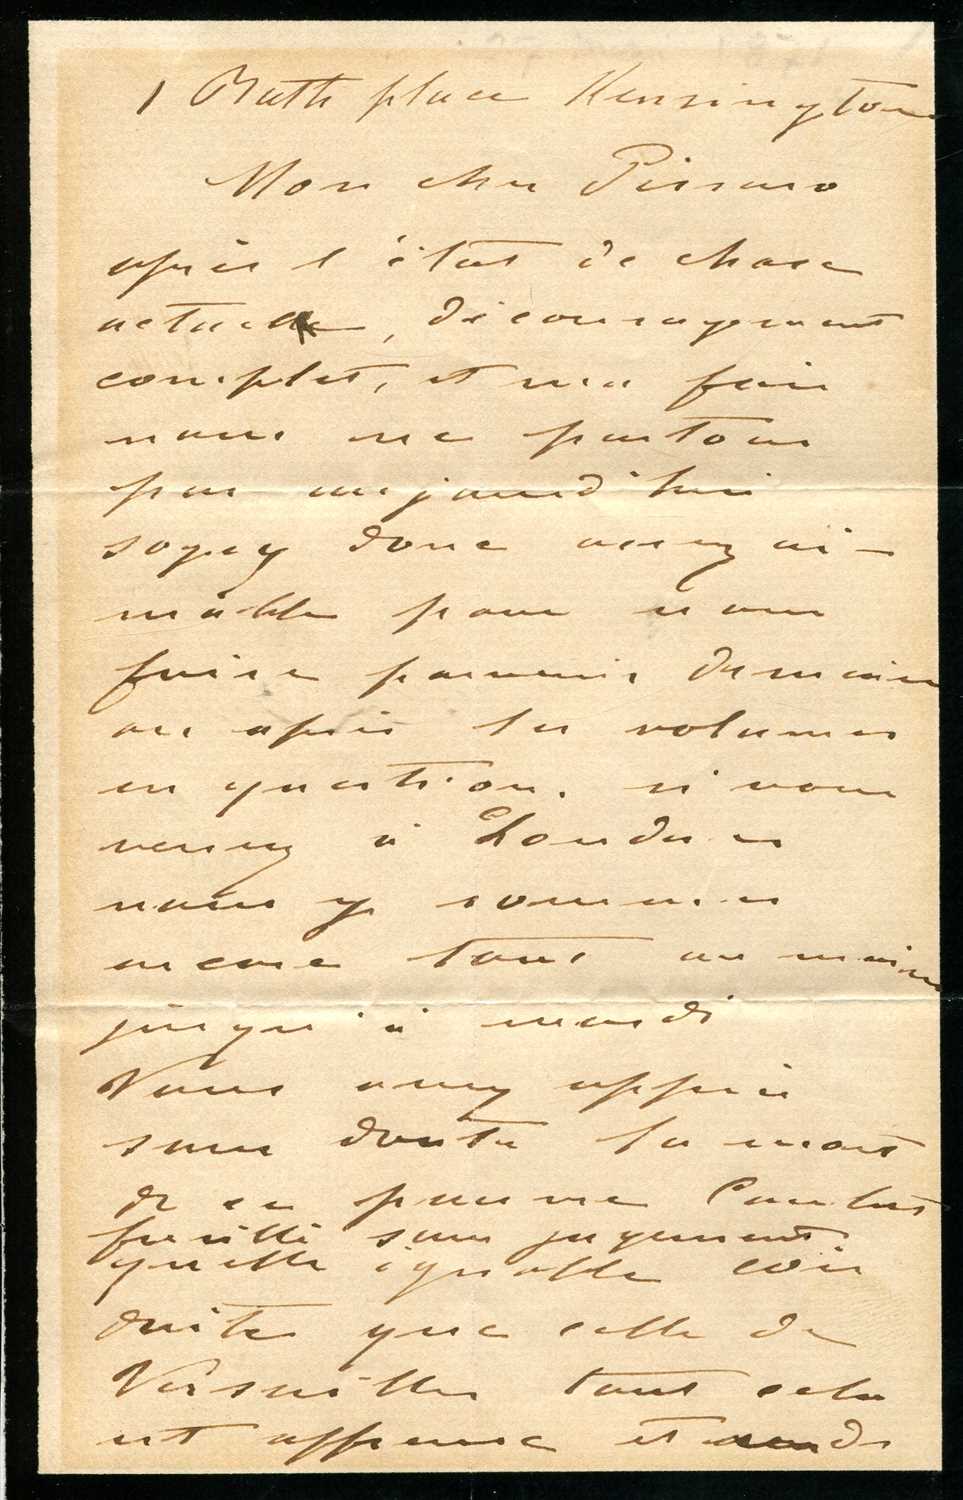 1 Bath place Kensington
Mon cher Pissaro
après l'état de chose
actuelle, découragement
complet, et ma foi
nous ne partons
pas aujourd'hui
soyez donc assez ai-
mable pour nous
faire parvenir demain
ou après les volumes
en question. si vous
venez à Londres
nous y sommes
encore tout au moins
jusqu'à mardi
Vous avez appris
sans doute la mort
de ce pauvre Courbet
fusillé sans jugement
quelle ignoble con
duite que celle de
Versailles tout cela
est affreux et rends